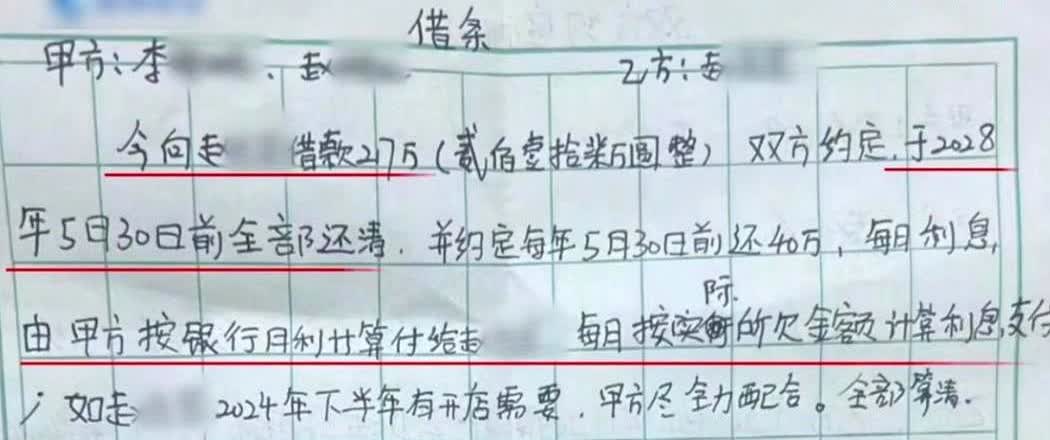 借条
甲方：李 、赵 乙方：赵
今向赵 借款217万（贰佰壹拾柒万圆整） 双方约定，于2028
年5月30日前全部还清．并约定每年5月30日前还40万，每月利息，
由甲方按银行月利计算付给赵 每月按实际所欠金额计算利息支付
；如赵 2024年下半年有开店需要．甲方尽全力配合。全部算清．